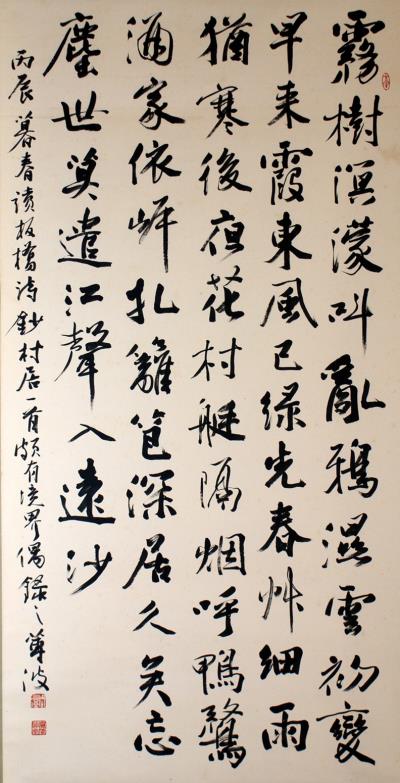 霧樹溟濛叫亂鴉濕雲初變
早来霞東風已綠先春艸細雨
猶寒後夜花村艇隔烟呼鴨鶩
酒家依岸扎籬笆深居久矣忘
塵世莫遣江聲入遠沙
丙辰暮春讀板橋詩鈔村居一首頗有境界偶錄之波